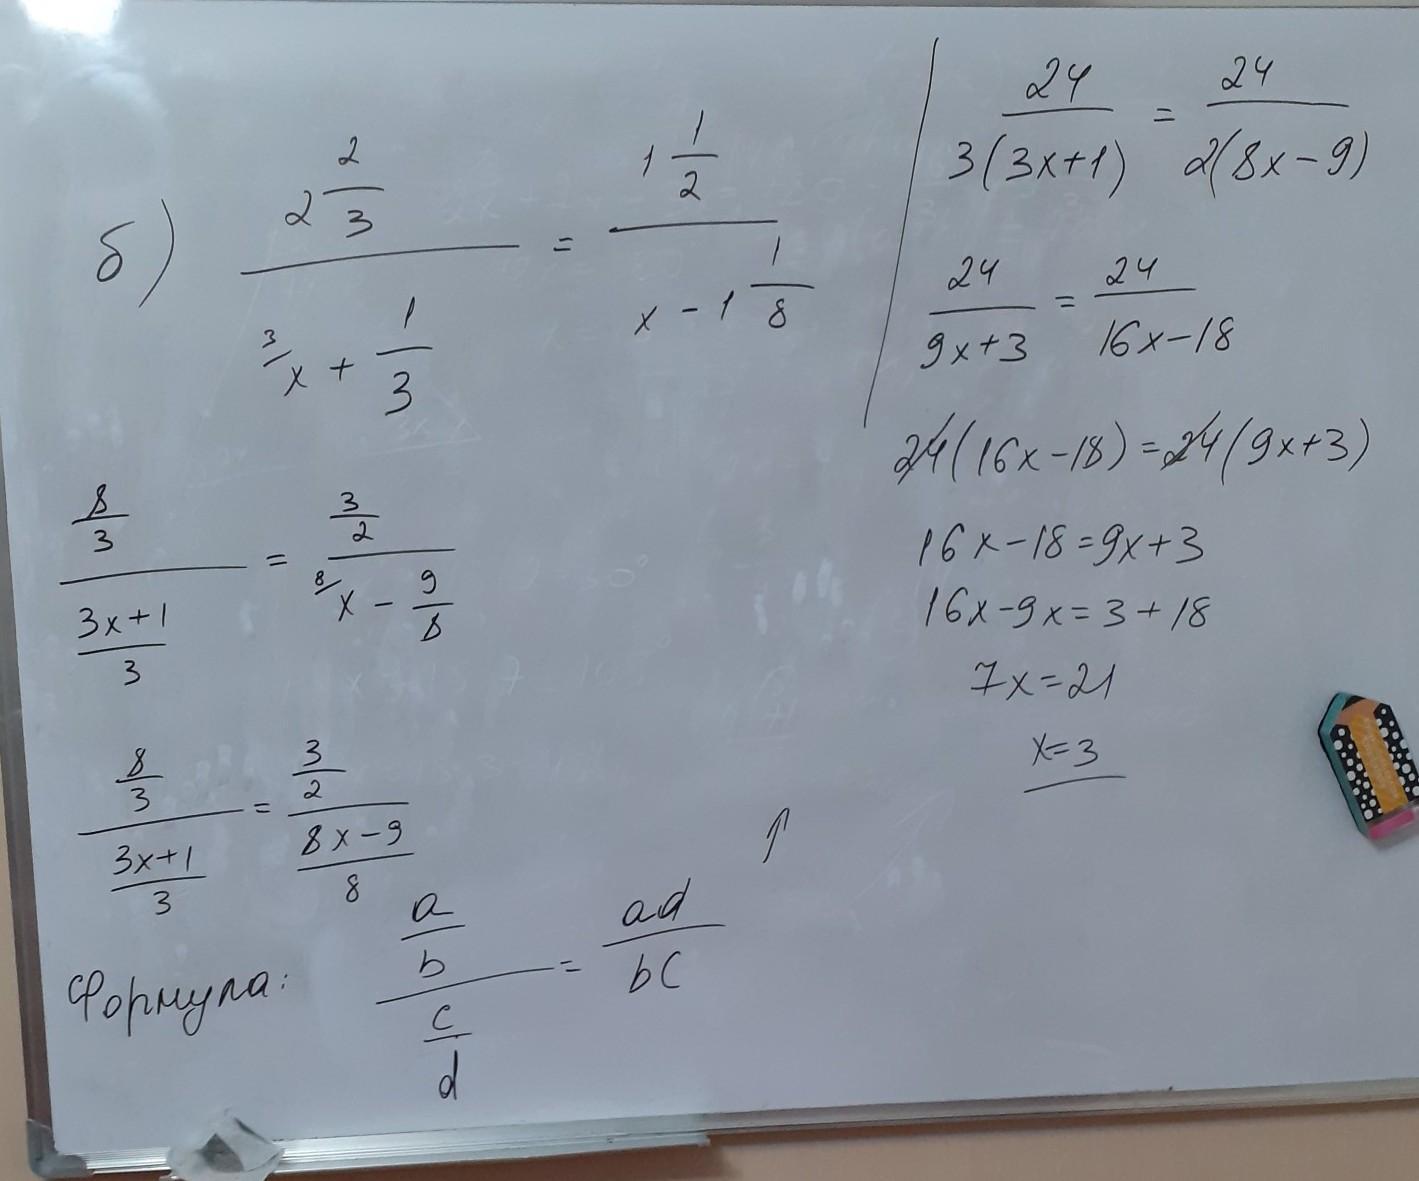 б) (2 2/3)/(³⁄x + 1/3) = (1 1/2)/(x - 1 1/8)
(8/3)/((3x+1)/3) = (3/2)/(⁸⁄x - 9/8)
(8/3)/((3x+1)/3) = (3/2)/((8x-9)/8)
Формула: (a/b)/(c/d) = ad/bc
↑
24/(3(3x+1)) = 24/(2(8x-9))
24/(9x+3) = 24/(16x-18)
24(16x-18)=24(9x+3)
16x-18=9x+3
16x-9x=3+18
7x=21
x=3